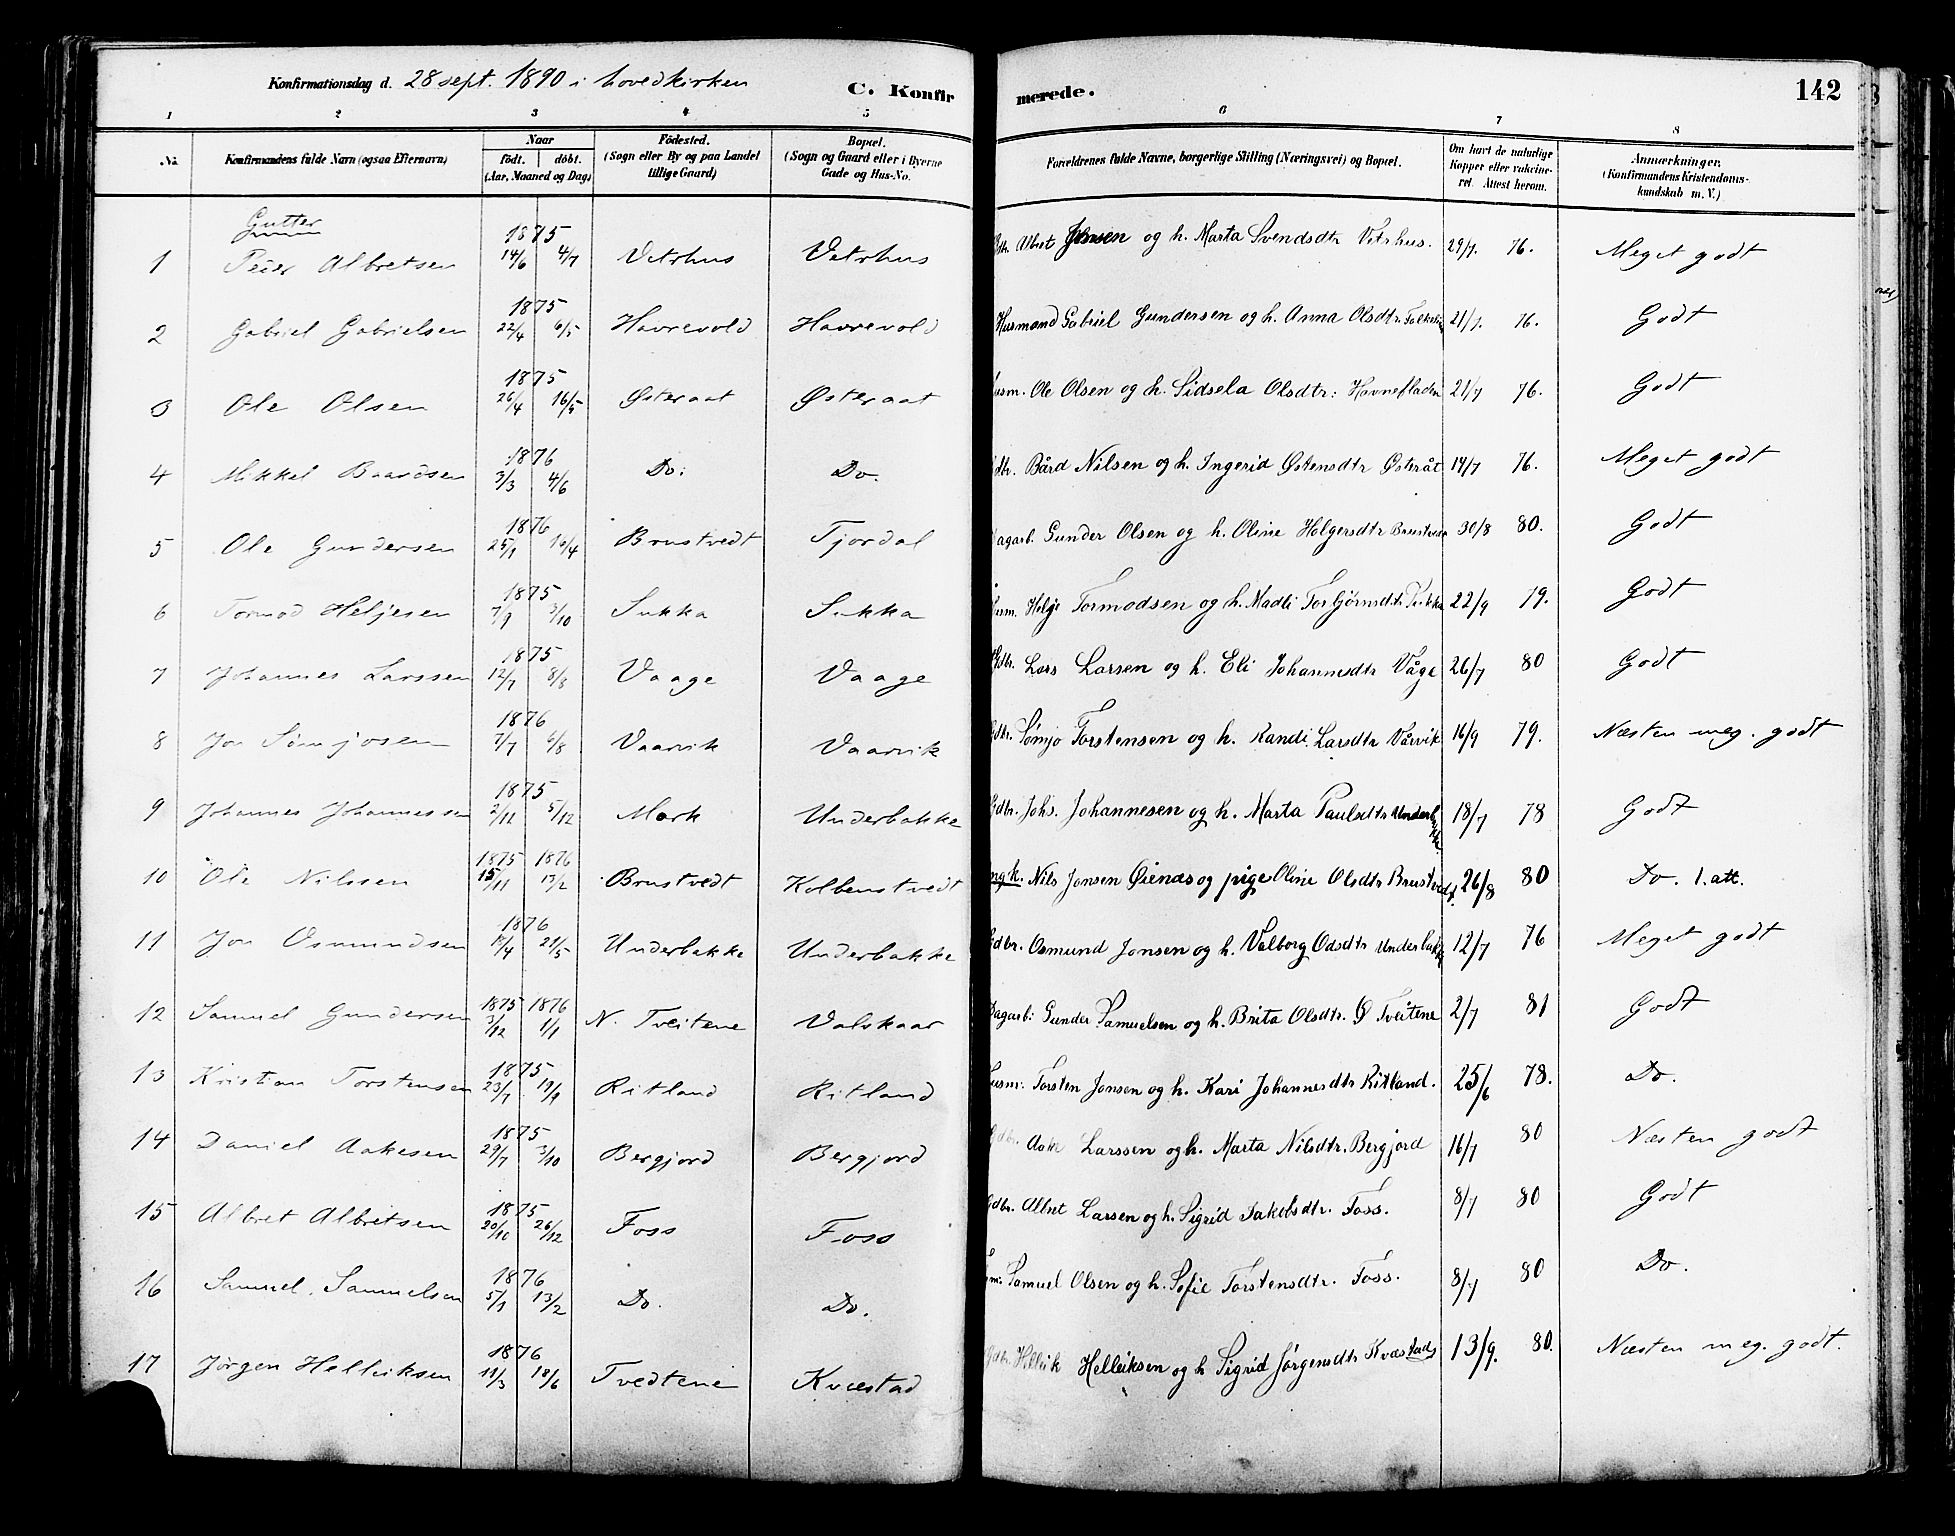 Konfirmationsdag d. 28 sept. 1890 i hovedkirken C. Konfirmerede. 142
1 2 3 4 5 6 7 8
No. Konfirmandens fulde Navn (ogsaa Efternavn) Naar født. døbt. (Aar, Maaned og Dag) Fødested. (Sogn eller By og paa Landet tillige Gaard) Bopæl. (Sogn og Gaard eller i Byerne Gade og Hus-No. Forældrenes fulde Navne, borgerlige Stilling (Næringsvei) og Bopæl. Om havt de naturlige Kopper eller vakcineret. Attest herom. Anmærkninger. (Konfirmandens Kristendomskundskab m. V.)
Gutter
1 Peder Albretsen 1875 14/6 4/7 Vetrhus Vetrhus Gdbr. Albret Jonsen og h. Marta Svendsdtr Vetrhus. 29/7. 76. Meget godt
2 Gabriel Gabrielsen 1875 22/4 6/5 Havrevold Havrevold Husmand Gabriel Gundersen og h. Anna Olsdtr. 21/7. 76. Godt
3 Ole Olsen 1875 26/4 16/5 Østeraat Østeraat Husm. Ole Olsen og h. Sidsela Olsdtr: 21/7 76. Godt
4 Mikkel Baardsen 1876 3/3 4/6 Do: Do. Gdbr. Bård Nilsen og h. Ingerid Østensdtr Østeråt 14/7 76. Meget godt
5 Ole Gundersen 1876 25/1 16/4 Brustvedt Tjordal Dagarb. Gunder Olsen og h. Oline Holgersdtr Brustvedt 30/8 80. Godt
6 Tormod Heljesen 1875 7/9 3/10 Sukka Sukka Husm. Helje Tormodsen og h. Madli Torbjørnsdtr Sukka 22/9 79. Godt
7 Johannes Larssen 1875 12/7 8/8 Vaage Vaage Gdbr. Lars Larsen og h. Eli Johannesdtr Våge 26/7 80 Godt
8 Jon Sømjosen 1876 7/7 6/8 Vaarvik Vaarvik Gdbr. Sømjo Torstensen og h. Randi Larsdtr Vårvik 16/9 79. Næsten meg. godt
9 Johannes Johannessen 1875 2/11 5/12 Mork Underbakke Gdbr. Johs. Johannesen og h. Marta Paulsdtr Underbakke 18/7 78 Godt
10 Ole Nilssen 1875 15/11 1876 13/2 Brustvedt Kolbenstvedt Ungk. Nils Jonsen Øienæs og pige Oline Olsdtr Brustvedt. 26/8 80 Do. 1. att.
11 Jon Osmundsen 1876 18/4 21/5 Underbakke Underbakke Gdbr. Osmund Jonsen og h. Valborg Odsdtr Underbakke 12/7 76 Meget godt
12 Samuel Gundersen 1875 3/12 1876 1/1 N. Tveitene Valskaar Dagarb: Gunder Samuelsen og h. Brita Olsdtr. Ø Tveitene 2/7 81 Godt
13 Kristian Torstensen 1875 23/7 19/9 Ritland Ritland Husm: Torsten Jonsen og h. Kari Johannesdtr Ritland. 25/6 78. Do.
14 Daniel Aakesen 1875 29/7 3/10 Bergjord Bergjord Gdbr. Aake Larssen og h. Marta Nilsdtr. Bergjord 16/7 80 Næsten godt
15 Albret Albretsen 1875 20/10 26/12 Foss Foss Gdbr. Albret Larsen og h. Sigrid Jakobsdtr. Foss. 8/7 80 Godt
16 Samuel Samuelsen 1876 5/1 13/2 Do. Do. Samuel Olsen og h. Sofie Torstensdtr. Foss. 8/7 80 Do.
17 Jørgen Helleiksen 1876 19/3 18/6 Tvedtene Kvæstad Gdbr. Helleik Helleiksen og h Sigrid Jørgensdtr Kvæstad 13/9. 80. Næsten meg. godt.